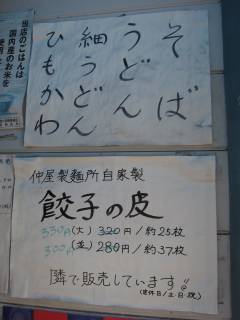 そば
うどん
細うどん
ひもかわ
当店のごはんは
国内産のお米を
仲屋製麺所自家製
餃子の皮
330円(大) 320円/約25枚
300円(並) 280円/約37枚
隣で販売しています!!
(定休日/土日祝)